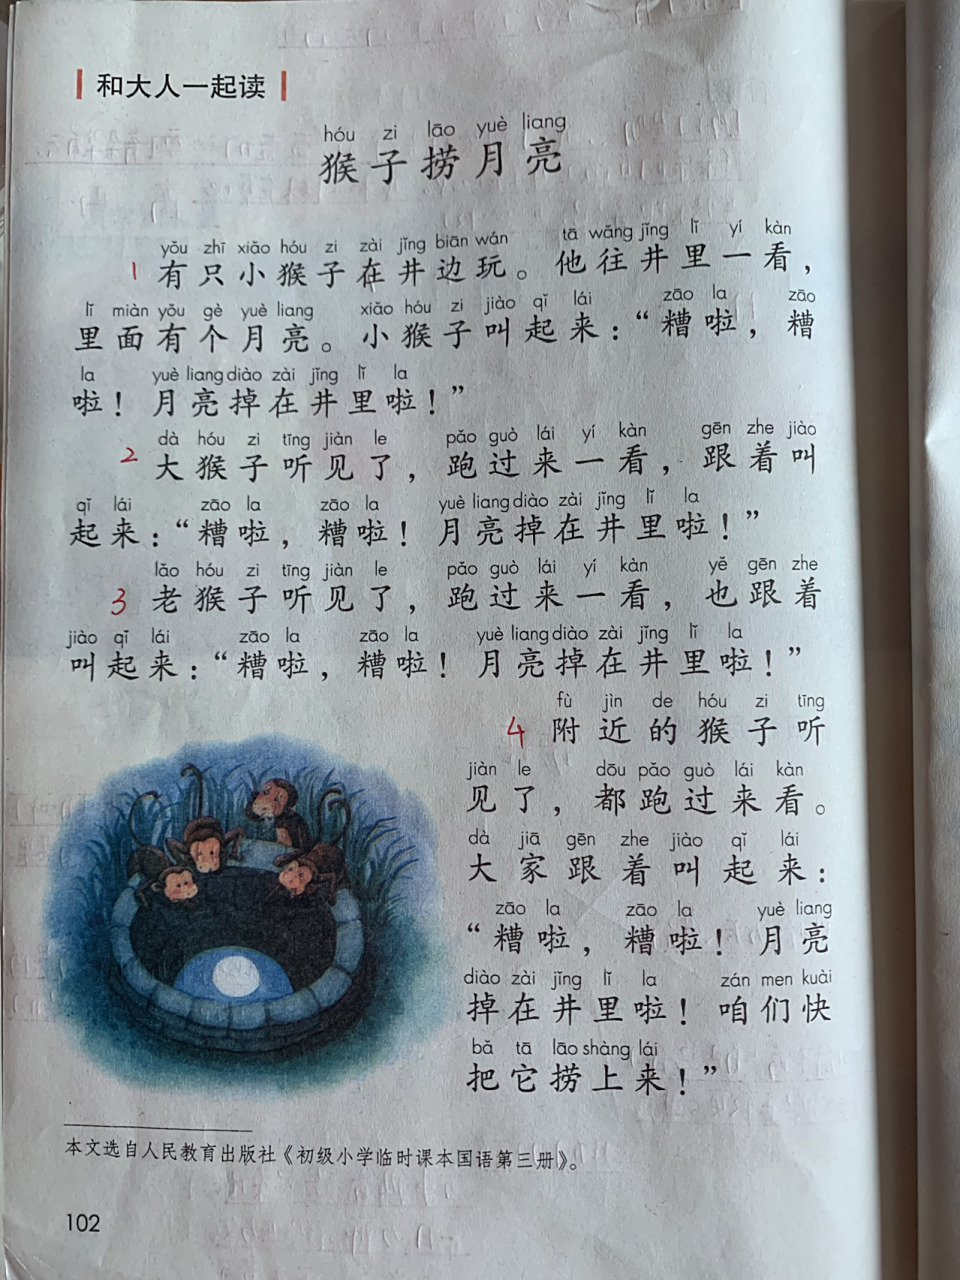 和大人一起读
hóu zi lāo yuè liang
猴子捞月亮
yǒu zhī xiǎo hóu zi zài jǐng biān wán tā wǎng jǐng lǐ yí kàn
1 有只小猴子在井边玩。他往井里一看，
lǐ miàn yǒu gè yuè liang xiǎo hóu zi jiào qǐ lái zāo la zāo
里面有个月亮。小猴子叫起来：“糟啦，糟
la yuè liang diào zài jǐng lǐ la
啦！月亮掉在井里啦！”
dà hóu zi tīng jiàn le pǎo guò lái yí kàn gēn zhe jiào
2 大猴子听见了，跑过来一看，跟着叫
qǐ lái zāo la zāo la yuè liang diào zài jǐng lǐ la
起来：“糟啦，糟啦！月亮掉在井里啦！”
lǎo hóu zi tīng jiàn le pǎo guò lái yí kàn yě gēn zhe
3 老猴子听见了，跑过来一看，也跟着
jiào qǐ lái zāo la zāo la yuè liang diào zài jǐng lǐ la
叫起来：“糟啦，糟啦！月亮掉在井里啦！”
fù jìn de hóu zi tīng
4 附近的猴子听
jiàn le dōu pǎo guò lái kàn
见了，都跑过来看。
dà jiā gēn zhe jiào qǐ lái
大家跟着叫起来：
zāo la zāo la yuè liang
“糟啦，糟啦！月亮
diào zài jǐng lǐ la zán men kuài
掉在井里啦！咱们快
bǎ tā lāo shàng lái
把它捞上来！”
本文选自人民教育出版社《初级小学临时课本国语第三册》。
102